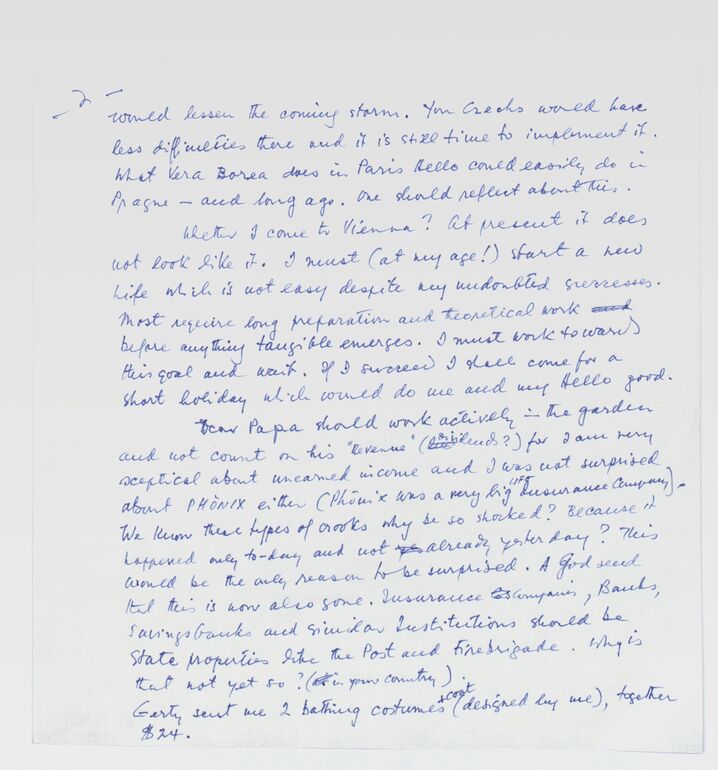 - 2 -
would lessen the coming storm. You Czechs would have
less difficulties there and it is still time to implement it.
What Vera Borea does in Paris Hello could easily do in
Prague – and long ago. One should reflect about this.
Whether I come to Vienna? At present it does
not look like it. I must (at my age!) start a new
life which is not easy despite my undoubted successes.
Most require long preparation and theoretical work
before anything tangible emerges. I must work towards
this goal and wait. If I succeed I shall come for a
short holiday which would do me and my Hello good.
Dear Papa should work actively in the garden
and not count on his "Revenue" (dividends?) for I am very
sceptical about unearned income and I was not surprised
about PHÖNIX either (Phönix was a very big Life Insurance Company).
We know these types of crooks why be so shocked? Because it
happened only to-day and not already yesterday? This
would be the only reason to be surprised. A God send
that this is now also gone. Insurance Companies, Banks,
Savingsbanks and similar Institutions should be
State properties like the Post and Firebrigade. Why is
that not yet so? (in your country).
Gerty sent me 2 bathing costumes & coat (designed by me), together
$24.